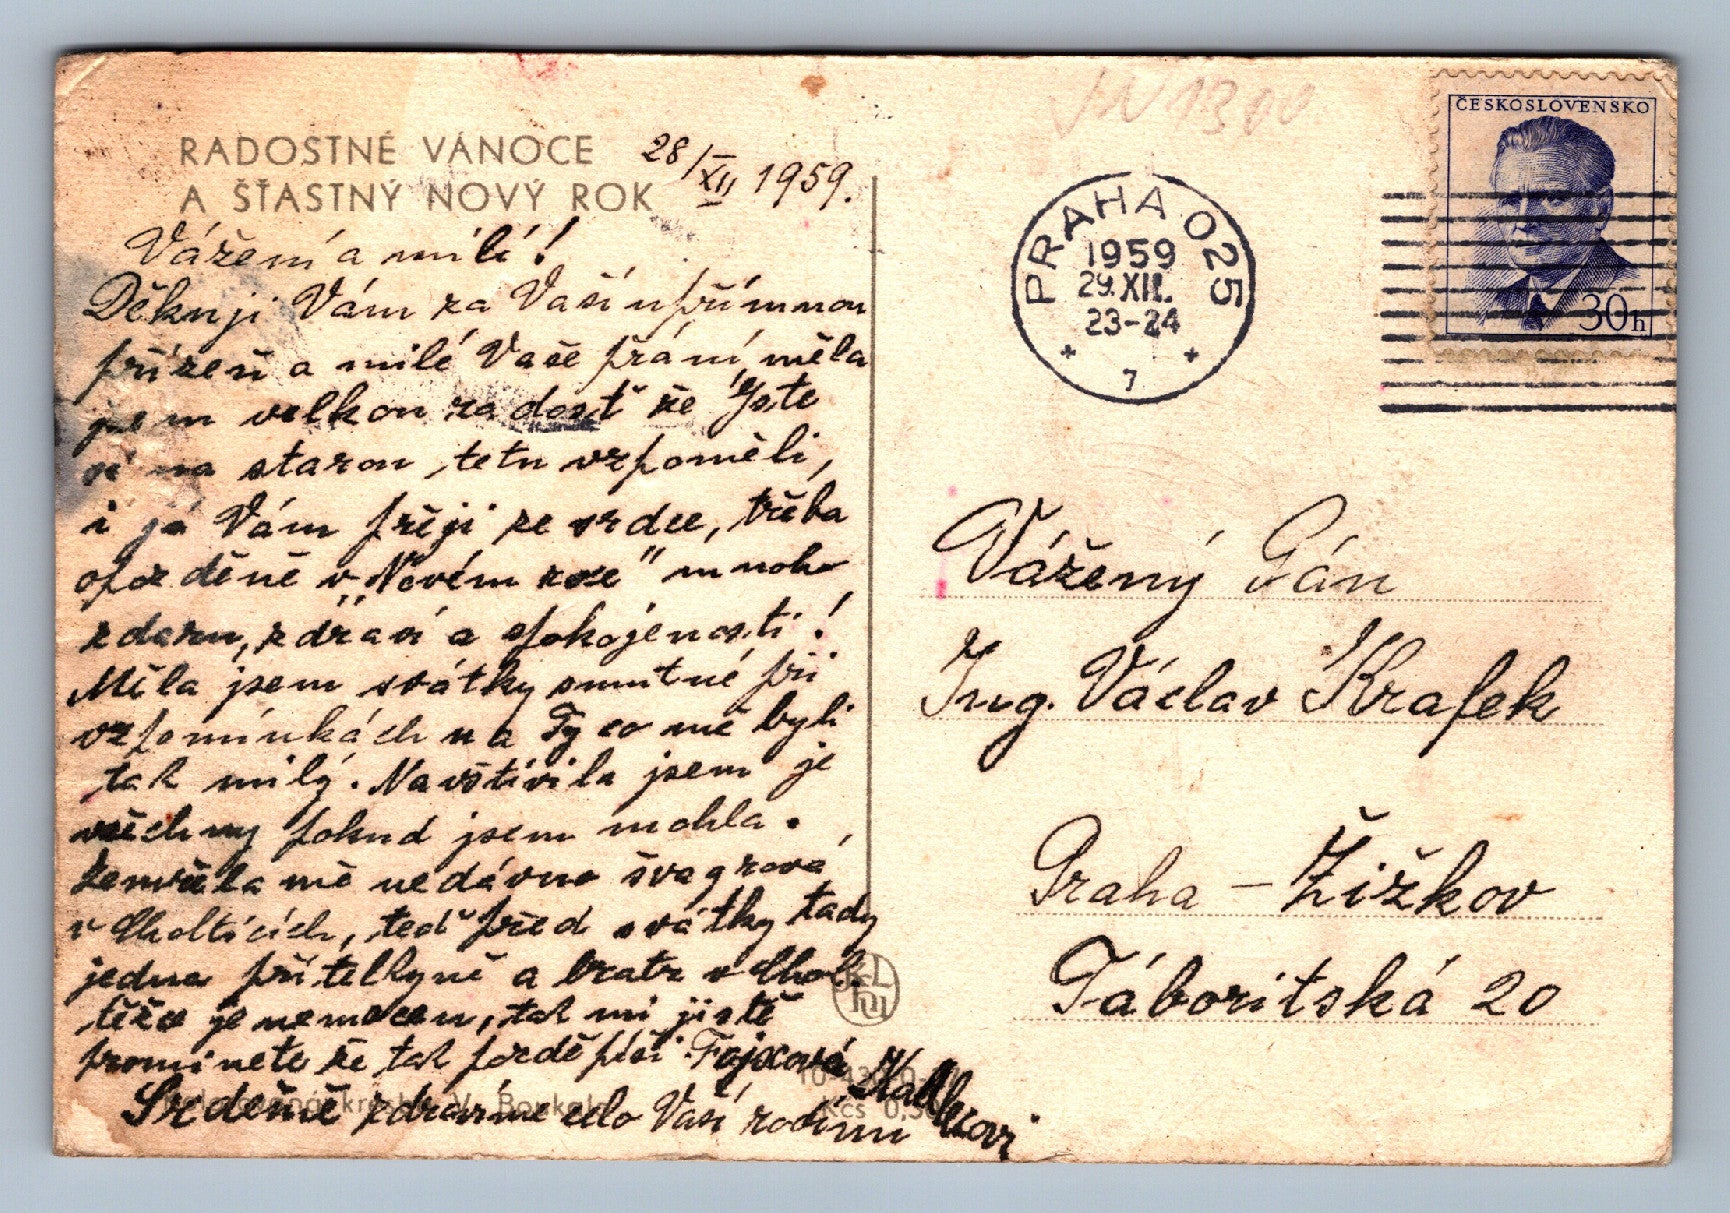 RADOSTNÉ VÁNOCE
A ŠŤASTNÝ NOVÝ ROK
28/XII 1959.
Vážení a milí!
Děkuji Vám za Vaší upřímnou
přízeň a milé Vaše přání, měla
jsem velkou radosť že Jste
si na starou tetu vzpoměli,
i já Vám přeji ze srdce, třeba
opozděně v „Novém roce" mnoho
zdaru, zdraví a spokojenosti!
Měla jsem svátky smutné při
vzpomínkách na Ty co mě byli
tak milý. Navštívila jsem je
všechny pokud jsem mohla.
Zemřela mě nedávno švagrová
v Choltících, teď před svátky tady
jedna přítelkyně a bratr v Cholt.
těžce je nemocen, tak mi jistě
prominete že tak pozdě píši
Srdečně zdravíme celo Vaší rodinu
Kčs 0,30
PRAHA 025
1959
29.XII.
23-24
7
ČESKOSLOVENSKO
30h
Vážený Pán
Ing. Václav Krafek
Praha – Žižkov
Táboritská 20